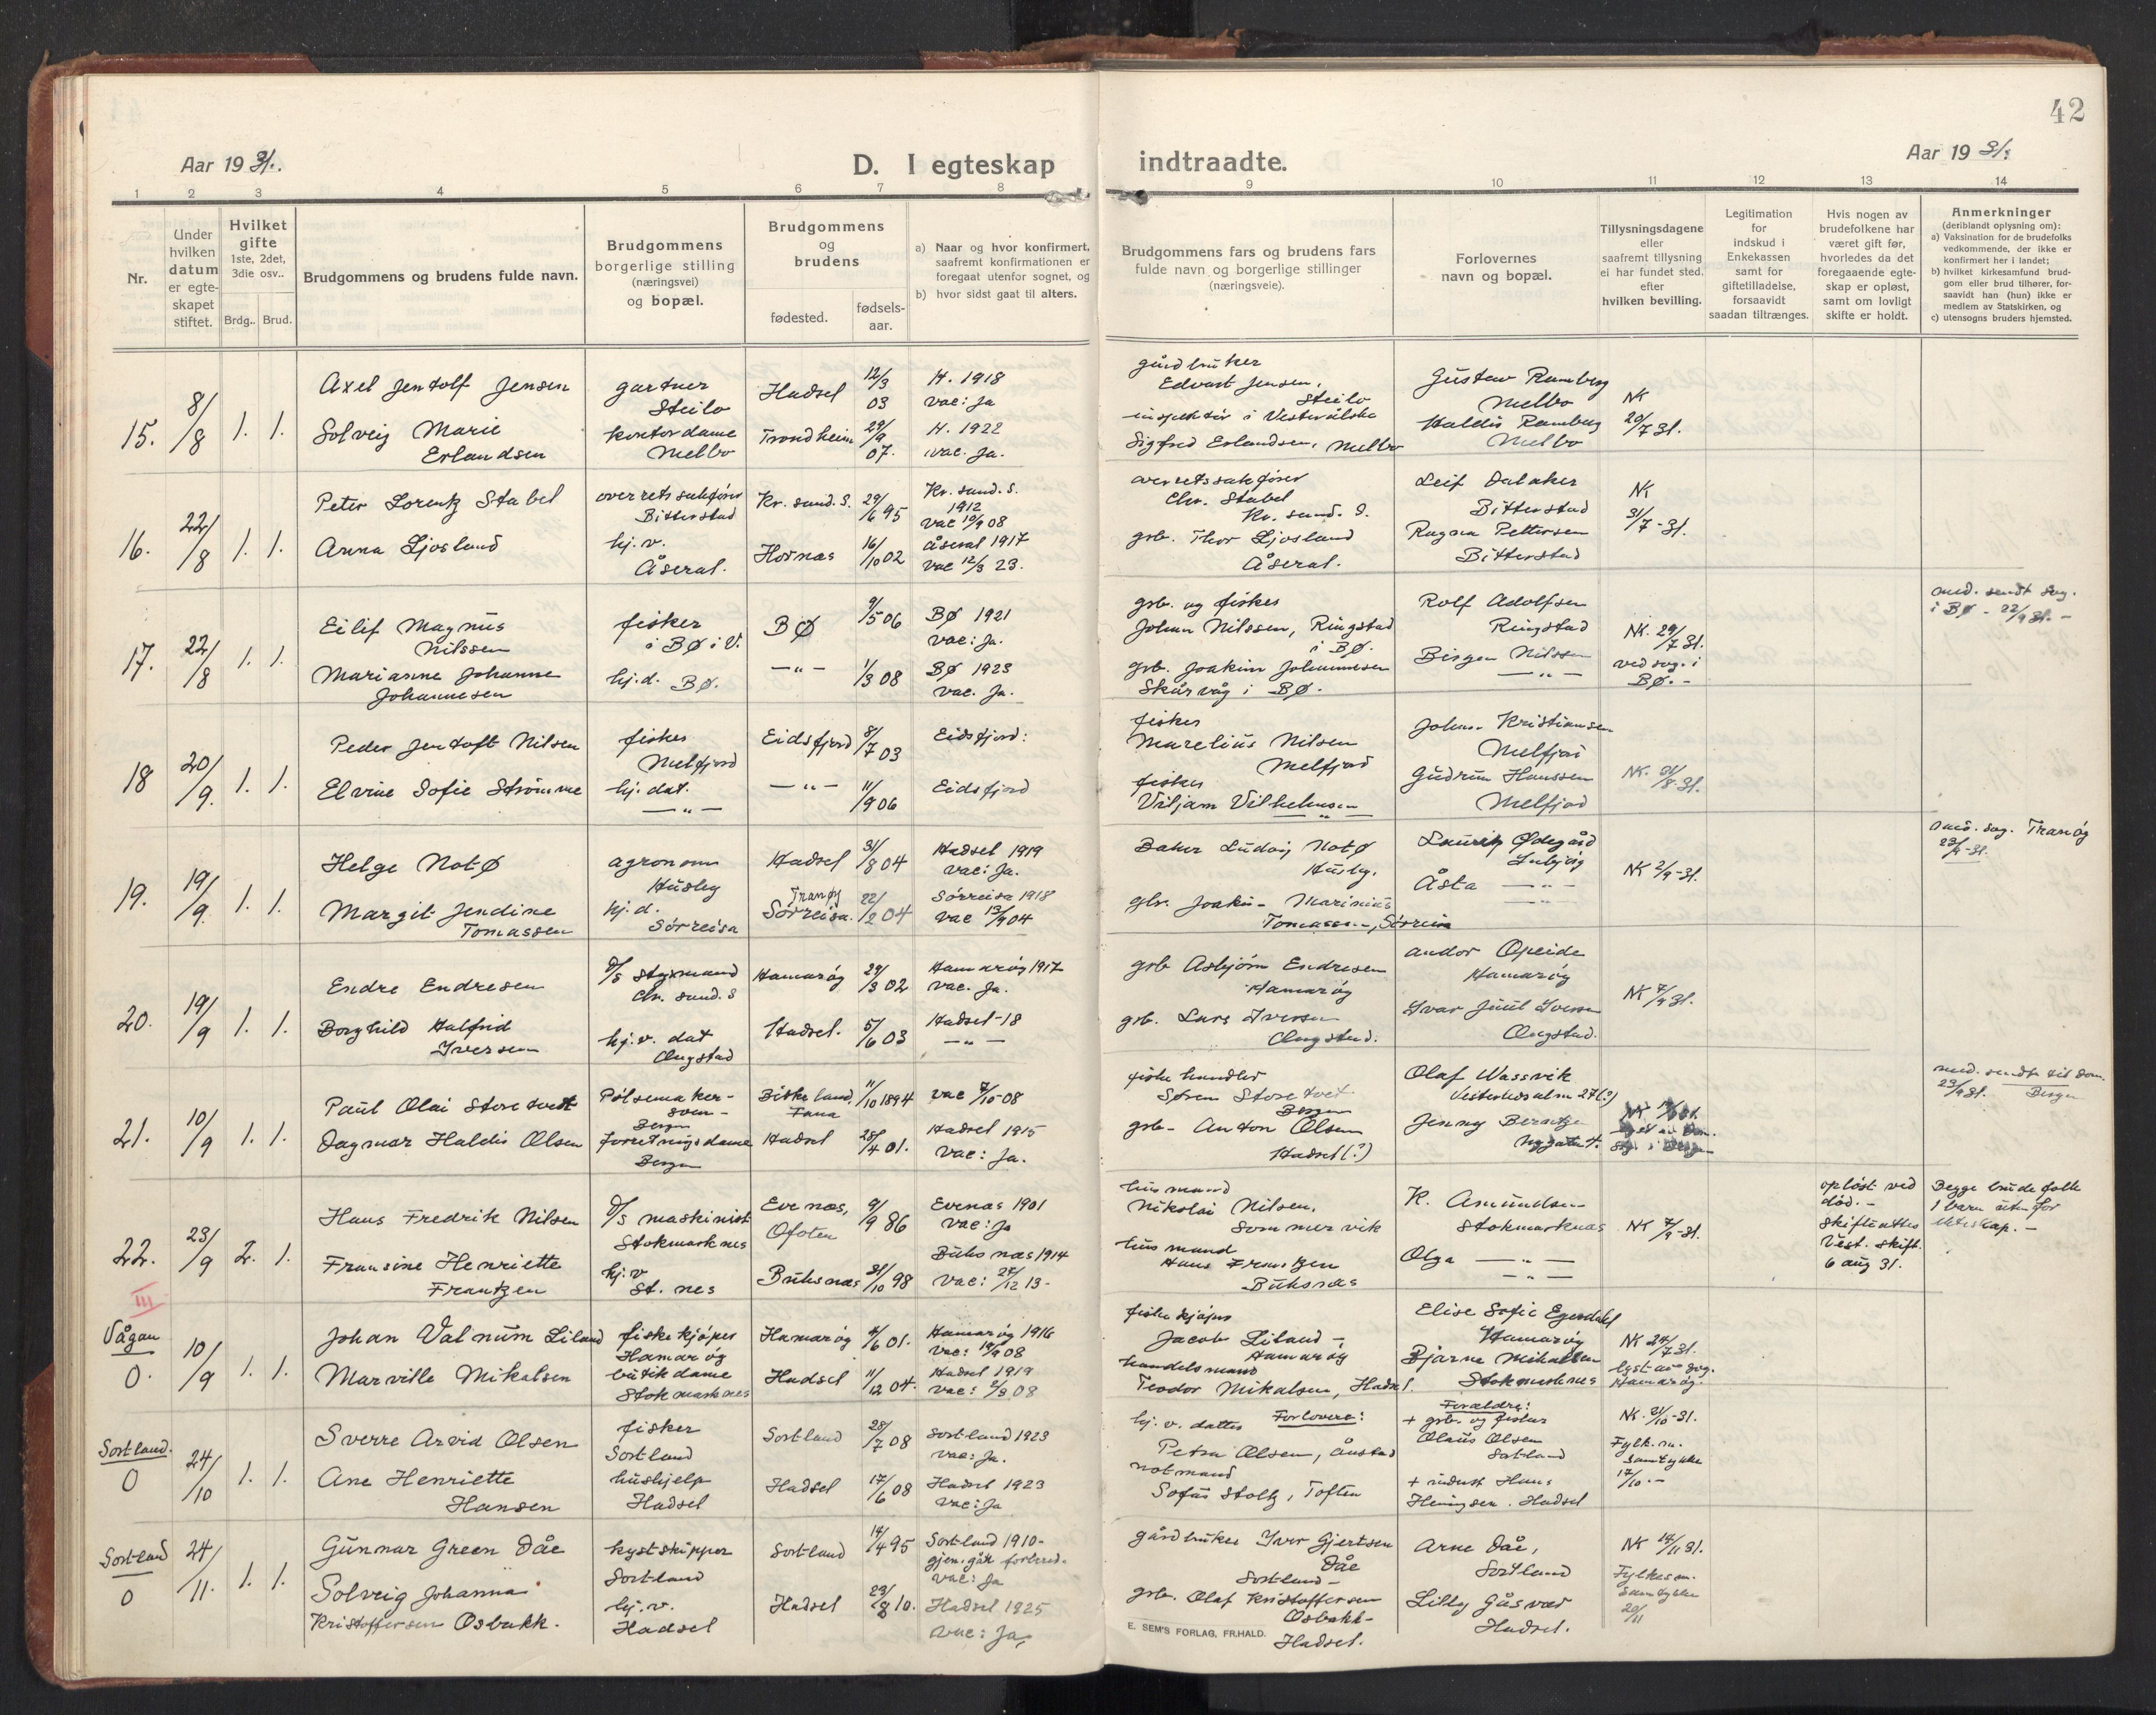 42
Aar 1931.
D. I egteskap
indtraadte.
Aar 1931.
1 2 3 4 5 6 7 8 9 10 11 12 13 14
Nr.
Under hvilken datum er egte-skapet stiftet.
Hvilket gifte 1ste, 2det, 3die osv..
Brdg.. Brud.
Brudgommens og brudens fulde navn.
Brudgommens borgerlige stilling (næringsvei) og bopæl.
Brudgommens og brudens
fødested.
fødsels-aar.
a) Naar og hvor konfirmert, saafremt konfirmationen er foregaat utenfor sognet, og
b) hvor sidst gaat til alters.
Brudgommens fars og brudens fars fulde navn og borgerlige stillinger (næringsveie).
Forlovernes navn og bopæl.
Tillysningsdagene eller saafremt tillysning ei har fundet sted. efter hvilken bevilling.
Legitimation for indskud i Enkekassen samt for giftetilladelse, forsaavidt saadan tiltrænges.
Hvis nogen av brudefolkene har været gift før, hvorledes da det foregaaende egte-skap er opløst, samt om lovligt skifte er holdt.
Anmerkninger (deriblandt oplysning om):
a) Vaksination for de brudefolks vedkommende, der ikke er konfirmert her i landet;
b) hvilket kirkesamfund brud-gom eller brud tilhører, for-saavidt han (hun) ikke er medlem av Statskirken, og
c) utensogns bruders hjemsted.
15. 8/8 1. 1.
Axel Jentolf Jensen
gartner Steilo
Hadsel 12/3 03
H. 1918 vac: Ja
gårdbruker Edvart Jensen, Steilo
Gustav Ramberg Melbo
NK 20/7 31.
Solveig Marie Erlandsen
kontordame Melbo
Trondheim 29/9 07.
H. 1922 vac. Ja.
inspektør i Vesterålske Sigfred Erlandsen, Melbo
Haldis Ramberg Melbo
16. 22/8 1. 1.
Peter Lorentz Stabel
overretssakfører Bitterstad
Kr. sund. S. 29/6 95
Kr. sund. S. 1912 vac 10/9 08
overretssakfører Chr. Stabel Kr. sund. S.
Leif Dalaker Bitterstad
NK 31/7-31.
Anna Ljosland
hj. v. Åseral.
Hornas 16/10 02
Åseral 1917 vac 12/3 23.
grb. Thor Ljosland Åseral.
Ragna Pettersen Bitterstad
17. 22/8 1. 1.
Eilif Magnus Nilssen
fisker i BØ i V.
BØ 9/5 06
BØ 1921 vac: Ja.
grb. og fisker Johan Nilssen, Ringstad i BØ.
Rolf Adolfsen Ringstad
NK. 29/7 31. ved sog. i BØ.-
med. sendt sog. i BØ - 22/9 31. -
Marianne Johanne Johannesen
hj.d. BØ.
— " — 1/3 08
BØ 1923 vac. Ja.
grb. Joakim Johannesen Skårvåg i BØ.
Birger Nilssen — " —
18 20/9. 1. 1.
Peder Jentoft Nilsen
fisker Melfjord
Eidsfjord 8/7 03
Eidsfjord:
fisker Marelius Nilsen Melfjord
Johan Kristiansen Melfjord
NK. 31/8-31.
Elvine Sofie Strømme
hj. dat. — " —
— " — 11/9 06
Eidsfjord
fisker Viljam Vilhelmsen — " —
Gudrun Hanssen Melfjord
19. 19/9. 1. 1.
Helge Notø
agronom Husby
Hadsel 31/8 04
Hadsel 1919 vac: Ja.
Baker Ludvig Notø Husby.
Lauritz Ødegård
NK 2/9-31.
Margit Jendine Tomassen
hj.d. Sørreisa
Tranøy Sørreisa. 22/2 04
Sørreisa 1918 vac 13/9 04
Joakim Marinius Tomassen, Sørreisa
Åsta — " —
20. 19/9 1. 1.
Endre Endresen
D/S styrmand Chr. sund. S
Hamarøy 29/3 02
Hamarøy 1917 vac. Ja.
grb Asbjørn Endresen Hamarøy
Andor Opeide Hamarøy
NK 7/9 31.
Borghild Halfrid Iversen
hj. v. dat Ongstad
Hadsel. 5/6 03
Hadsel-18 — " —
grb. Lars Iversen Ongstad.
Ivar Juul Iversen Ongstad.
21. 10/9 1. 1.
Paul Olai Storetvedt
Pølsemaker-svend- Bergen
Fana 11/10 1894
vac 7/10-08
fiskehandler Søren Storetvet Bergen
Olaf Wassvik
Dagmar Haldis Olsen
forretningsdame Bergen
Hadsel 28/4 01.
Hadsel 1915 vac: Ja.
grb- Anton Olsen Hadsel(?)
Jenny
22. 23/9 2. 1.
Hans Fredrik Nilsen
D/S maskinist Stokmarknes
Evenes, Ofoten 9/9 86
Evenes 1901 vac: Ja
husmand Nikolai Nilsen, Sommervik
K. Amundsen Stokmarknes
NK 7/9-31.
opløst ved død.- Skifteattes Vest. skift. 6 aug 31.
Begge brudefolk 1 barn utenfor ekteskap. -
Fransine Henriette Frantzen
hj. v St. nes
Buksnes 31/10 98
Buksnes 1914 vac: 27/12 13-
husmand Hans Frantzen Buksnes
Olga — " —
III
Vågan 0. 10/9 1. 1.
Johan Valnum Liland
fiskekjøper Hamarøy
Hamarøy 4/6 01.
Hamarøy 1916 vac: 19/9 08
fiskekjøper Jacob Liland - Hamarøy
Elise Sofie Egendahl Hamarøy
NK 24/7 31. lyst av sog. Hamarøy.
Marville Mikalsen
butikdame Stokmarknes
Hadsel 11/12 04.
Hadsel 1919
handelsmand Teodor Mikalsen, Hadsel.
Bjarne Mikalsen Stokmarknes
Sortland. 0 24/10 1. 1.
Sverre Arvid Olsen
fisker Sortland
Sortland 28/7 08
Sortland 1923 vac: Ja.
hj. v. datter Forlovere: Petra Olsen, Ånstad
Forældre: + grb. og fisker Olaus Olsen Sortland
NK. 21/10-31. Fylk.m. samtykke 17/10.-
Ane Henriette Hansen
hushjelp Hadsel
Hadsel 17/6 08
Hadsel 1923 vac: Ja
notmand Sofus Stoltz, Toften
+ Hans Heningsen. Hadsel
Sortland 0 24/11. 1. 1.
Gunnar Green Dåe
kystskipper Sortland
Sortland 14/4 95
Sortland 1910- vac: Ja
gårdbruker Iver Gjertsen Dåe Sortland-
Arne Dåe, Sortland
NK 14/11 31. Fylkesm. samtykke 20/11
Solveig Johanna Kristoffersen Osbakk.
hj. v. Hadsel
Hadsel 23/8 10.
Hadsel 1925 vac: Ja,
grb. Olaf Kristoffersen Osbakk- Hadsel.
Lilly Gåsvær Hadsel.
E. SEM'S FORLAG, FR.HALD.